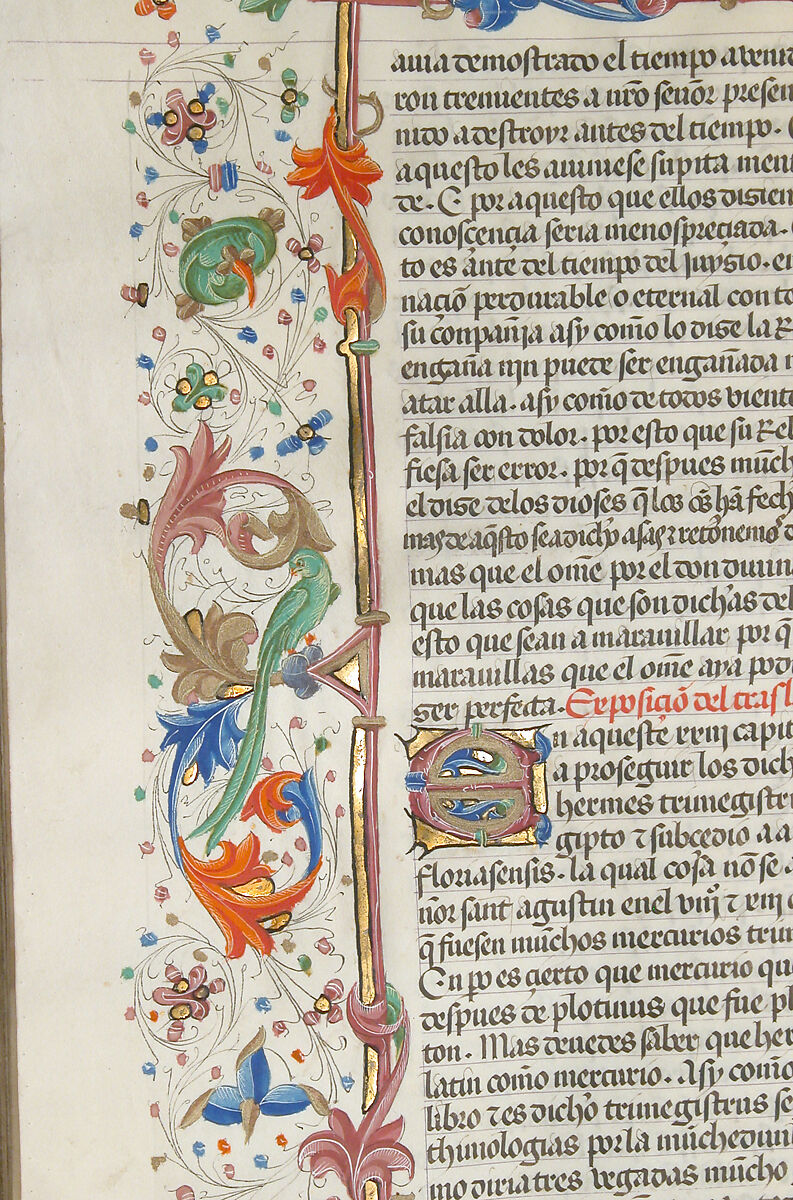 auia demostrado el tiempo auenid
ron tremientes a nr̄o señor presen
nido adestroyr antes del tiempo.
aquesto les auiniese supita ment
de. E por aquesto que ellos disien
conoscençia seria menospreçiada.
to es ante del tiempo del juysio. en
naçiō perdurable o eternal con to
su conpañja asy commo lo dise la
engaña njn puede ser engañada
atar alla. asy commo de todos viento
falsia con dolor. por esto que su Rel
fiesa ser error. por q̄ despues much
el dise delos dioses q̄ los han fech
mas de aq̄sto sea dicho asas z retornemos
mas que el om̄e por el don diuina
que las cosas que son dichas del
esto que sean a marauillar por q̄
marauillas que el om̄e aya pod
ser perfecta. Exposiciō del trasl
En aqueste xxiij capit
a proseguir los dich
hermes trimegistr
gipto z subcedio a a
floriasensis. la qual cosa nō se
ñor sant agustin enel viijº z xiij
q̄ fuesen munchos mercurios trim
En po es çierto que mercurio que
despues de plotinus que fue pl
ton. Mas deuedes saber que her
latin commo mercurio. Asy commo
libro z es dicho trimegistrus se
thimologias por la muchedun
mo diria tres vegadas muncho